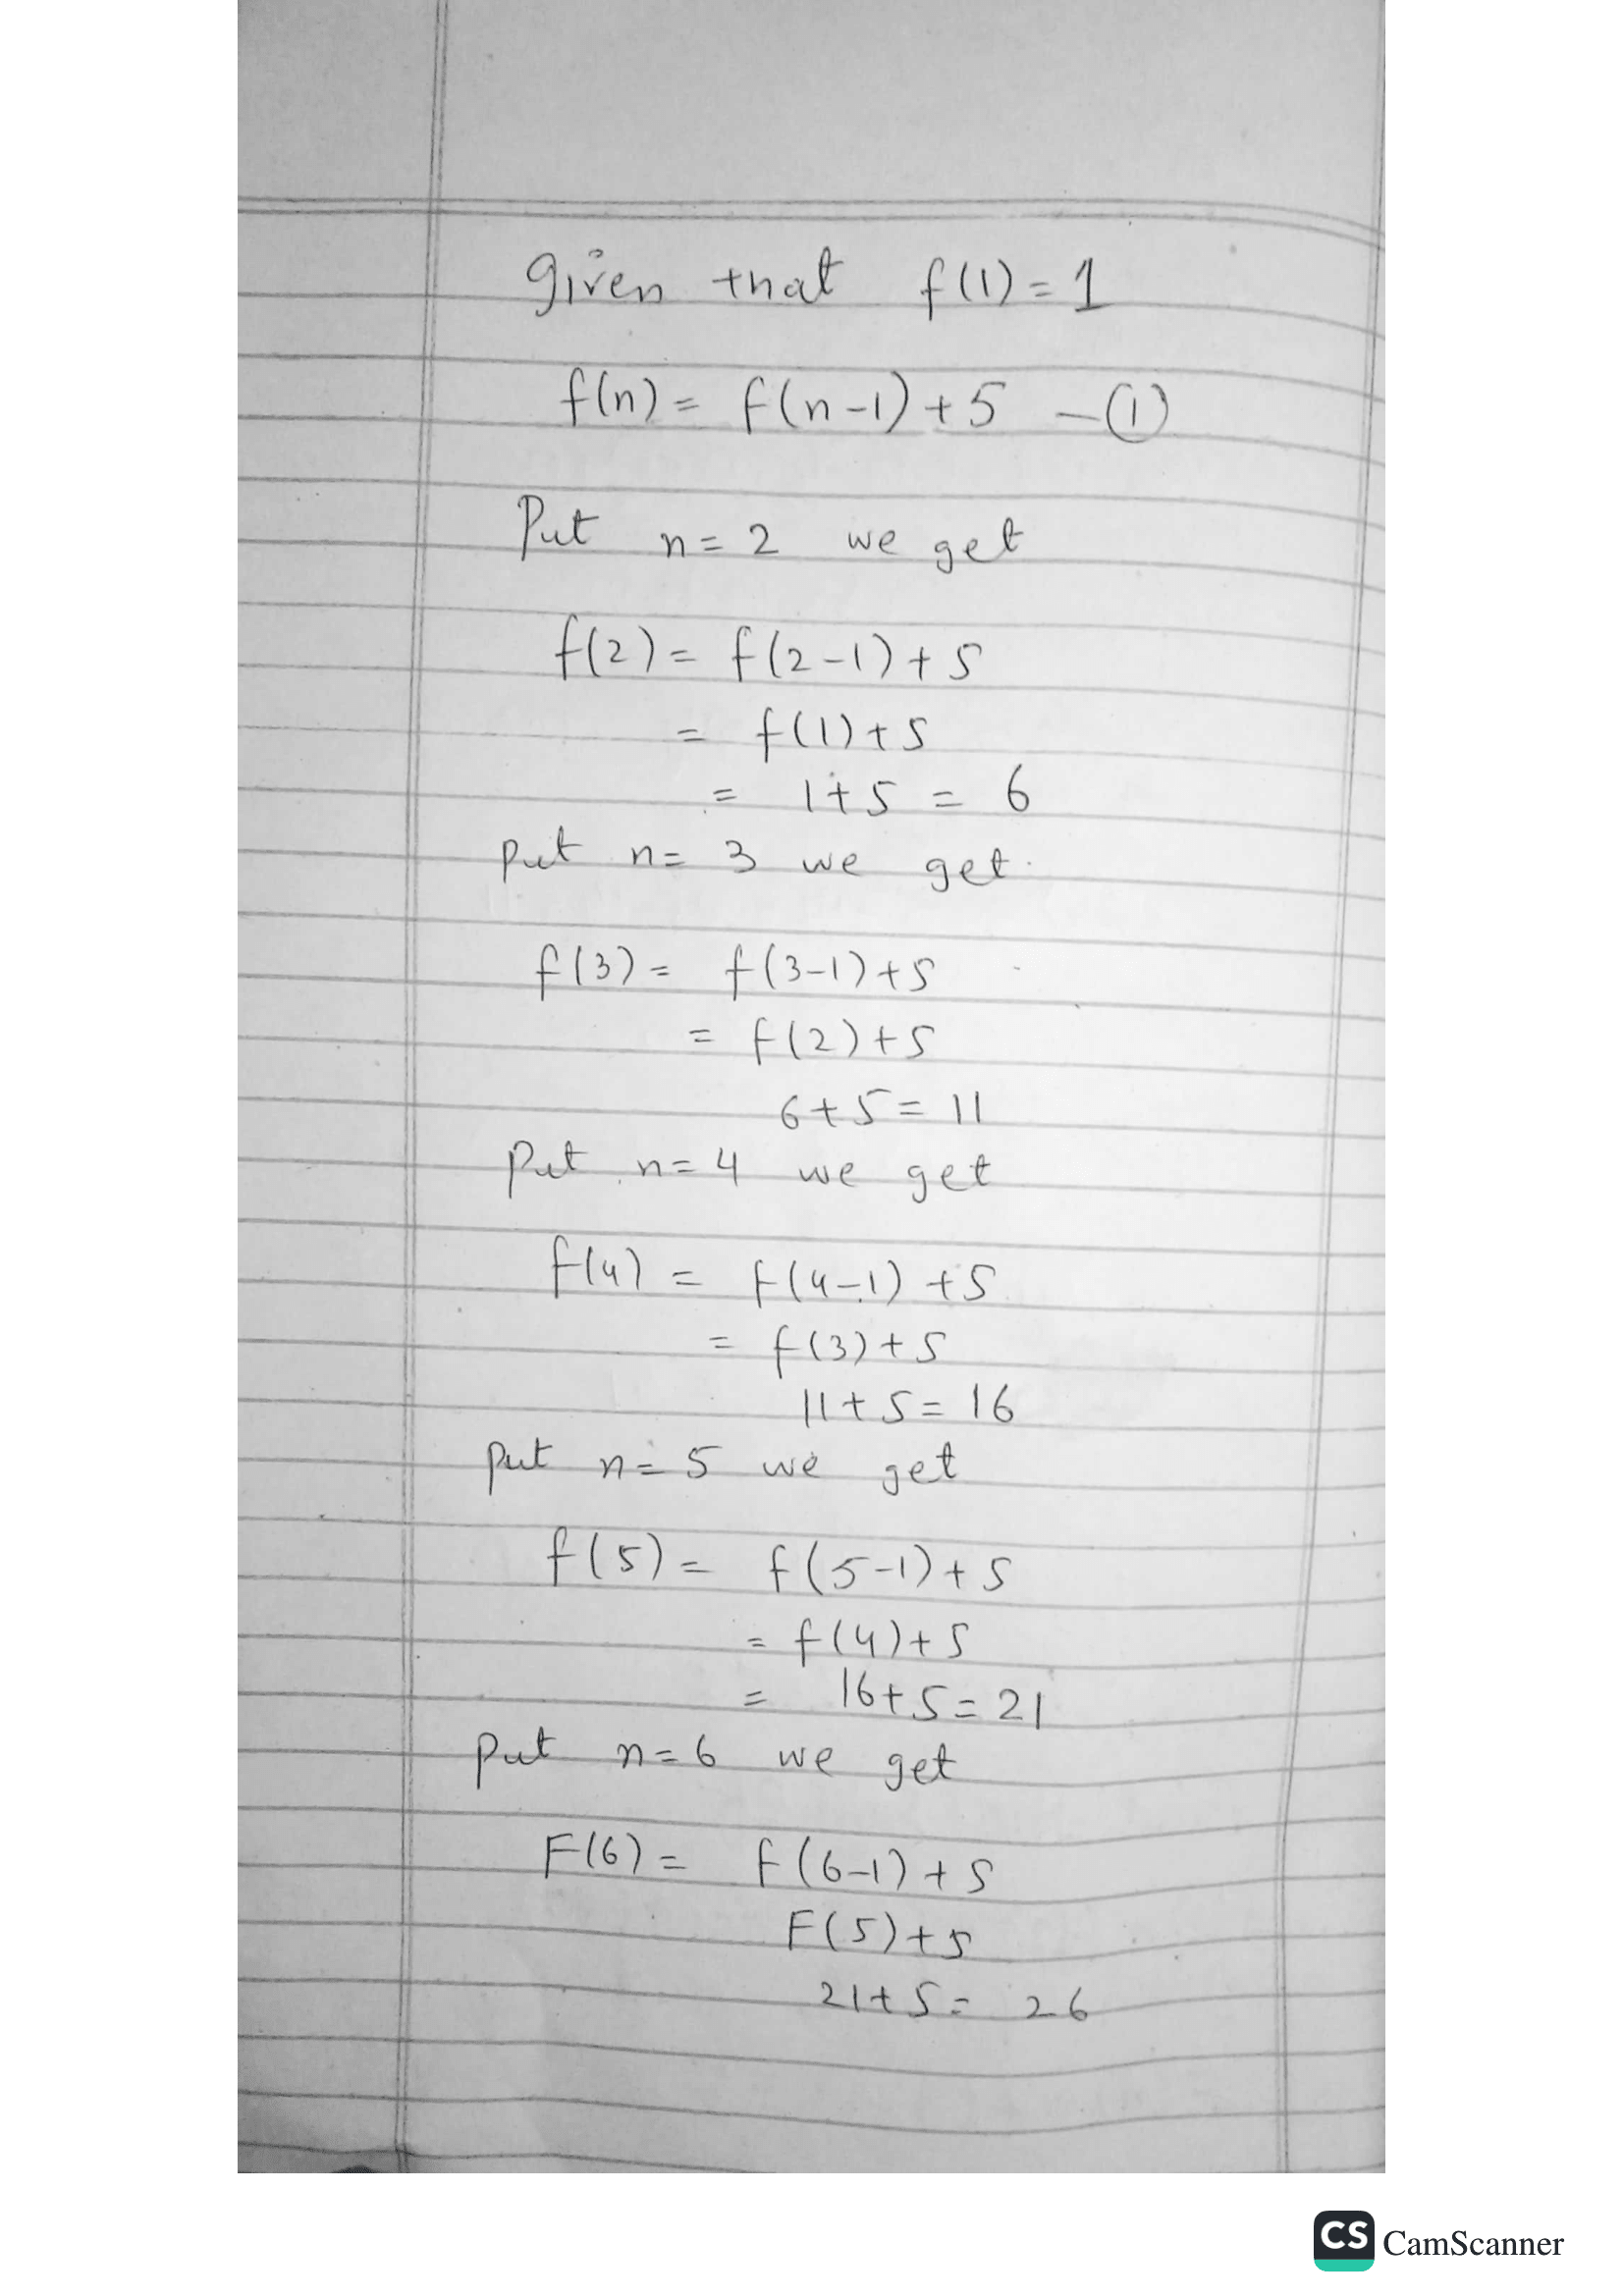 given that f(1) = 1
f(n) = f(n-1) + 5 - ①
Put n = 2 we get
f(2) = f(2-1) + 5
= f(1) + 5
= 1 + 5 = 6
put n = 3 we get.
f(3) = f(3-1) + 5
= f(2) + 5
6 + 5 = 11
Put n = 4 we get
f(4) = f(4-1) + 5
= f(3) + 5
11 + 5 = 16
put n = 5 we get
f(5) = f(5-1) + 5
= f(4) + 5
= 16 + 5 = 21
put n = 6 we get
F(6) = f(6-1) + 5
F(5) + 5
21 + 5 = 26
CS CamScanner